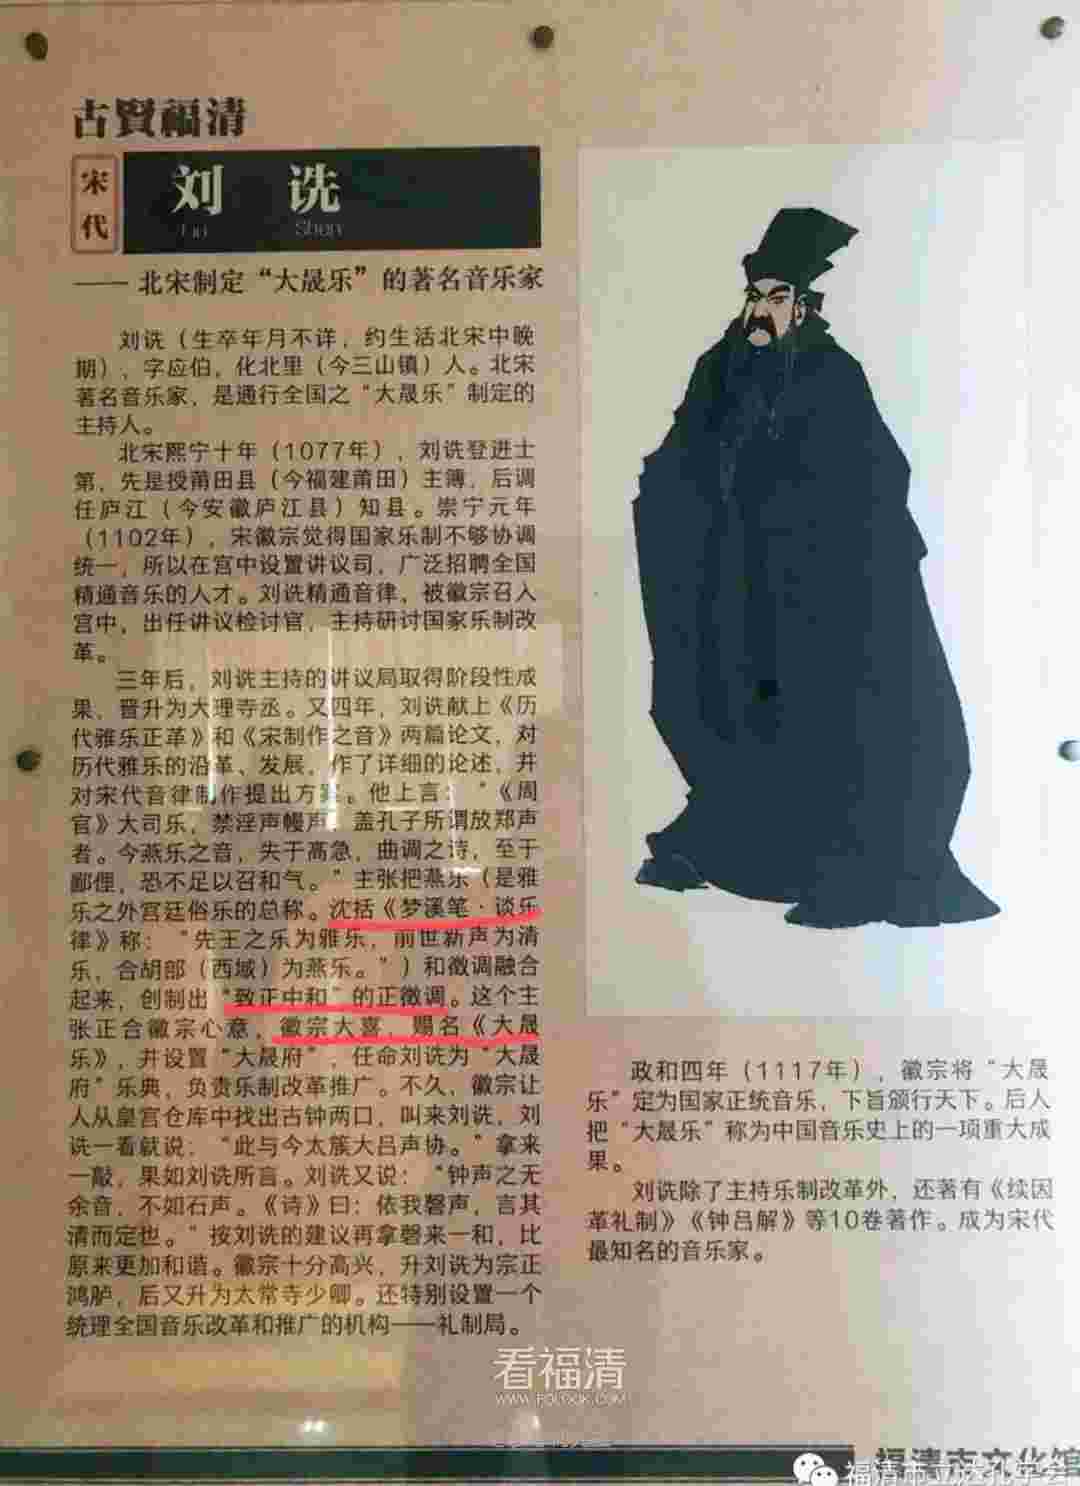 古賢福清
宋代
刘 诜
Liu Shen
——北宋制定“大晟乐”的著名音乐家
刘诜（生卒年月不详，约生活北宋中晚
期），字应伯，化北里（今三山镇）人。北宋
著名音乐家，是通行全国之“大晟乐”制定的
主持人。
北宋熙宁十年（1077年），刘诜登进士
第，先是授莆田县（今福建莆田）主簿，后调
任庐江（今安徽庐江县）知县。崇宁元年
（1102年），宋徽宗觉得国家乐制不够协调
统一，所以在宫中设置讲议司，广泛招聘全国
精通音乐的人才。刘诜精通音律，被徽宗召入
宫中，出任讲议检讨官，主持研讨国家乐制改
革。
三年后，刘诜主持的讲议局取得阶段性成
果，晋升为大理寺丞。又四年，刘诜献上《历
代雅乐正革》和《宋制作之音》两篇论文，对
历代雅乐的沿革、发展，作了详细的论述，并
对宋代音律制作提出方案。他上言：“《周
官》大司乐，禁淫声幔声，盖孔子所谓放郑声
者。今燕乐之音，失于高急，曲调之诗，至于
鄙俚，恐不足以召和气。”主张把燕乐（是雅
乐之外宫廷俗乐的总称。沈括《梦溪笔·谈乐
律》称：“先王之乐为雅乐，前世新声为清
乐，合胡部（西域）为燕乐。”）和徵调融合
起来，创制出“致正中和”的正徵调。这个主
张正合徽宗心意，徽宗大喜，赐名《大晟
乐》，并设置“大晟府”，任命刘诜为“大晟
府”乐典，负责乐制改革推广。不久，徽宗让
人从皇宫仓库中找出古钟两口，叫来刘诜，刘
诜一看就说：“此与今太簇大吕声协。”拿来
一敲，果如刘诜所言。刘诜又说：“钟声之无
余音，不如石声。《诗》曰：依我磬声，言其
清而定也。”按刘诜的建议再拿磬来一和，比
原来更加和谐。徽宗十分高兴，升刘诜为宗正
鸿胪，后又升为太常寺少卿。还特别设置一个
统理全国音乐改革和推广的机构——礼制局。
政和四年（1117年），徽宗将“大晟
乐”定为国家正统音乐，下旨颁行天下。后人
把“大晟乐”称为中国音乐史上的一项重大成
果。
刘诜除了主持乐制改革外，还著有《续因
革礼制》《钟吕解》等10卷著作。成为宋代
最知名的音乐家。
看福清
WWW.FQLOOK.COM
福清市文化馆
福清市立达孔学会